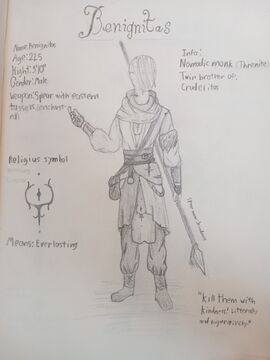 Benignitas
Name: Benignitas
Age: 215
Hight: 5'10"
Gender: Male
Weapon: Spear with eastern
tassels (enchant
ed)
Info:
Nomadic monk (Threnite)
Twin brother of:
Crudelitas
Religius symbol
Means: Everlasting
"Kill them with
kindness! Litterally
and figuratively."